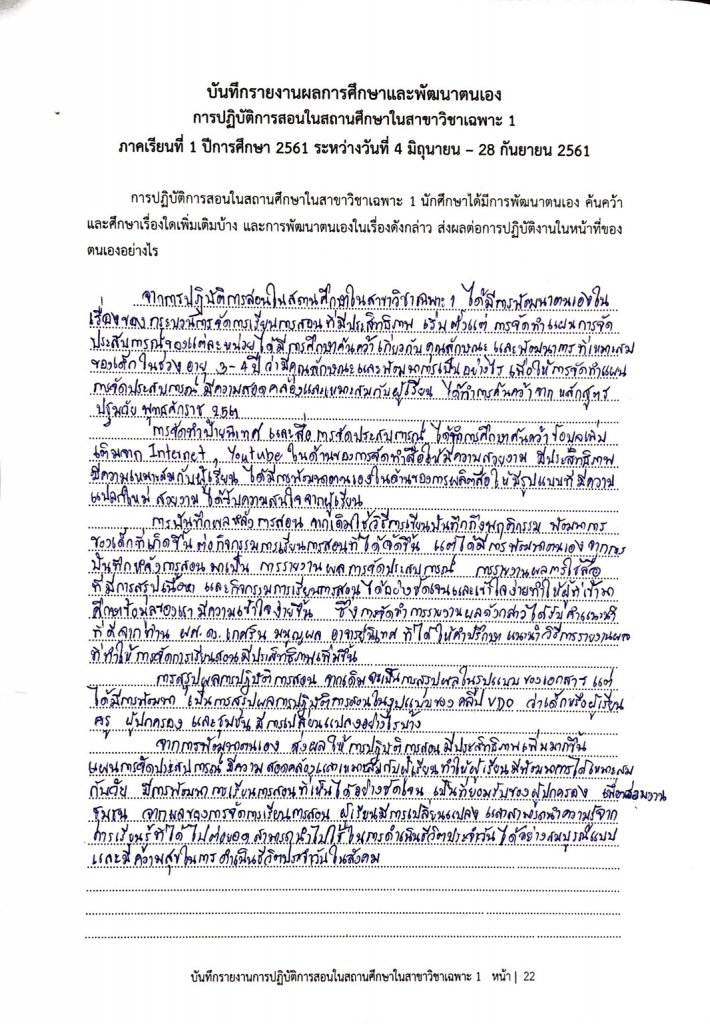 บันทึกรายงานผลการศึกษาและพัฒนาตนเอง
การปฏิบัติการสอนในสถานศึกษาในสาขาวิชาเฉพาะ 1
ภาคเรียนที่ 1 ปีการศึกษา 2561 ระหว่างวันที่ 4 มิถุนายน – 28 กันยายน 2561
การปฏิบัติการสอนในสถานศึกษาในสาขาวิชาเฉพาะ 1 นักศึกษาได้มีการพัฒนาตนเอง ค้นคว้า
และศึกษาเรื่องใดเพิ่มเติมบ้าง และการพัฒนาตนเองในเรื่องดังกล่าว ส่งผลต่อการปฏิบัติงานในหน้าที่ของ
ตนเองอย่างไร
จากการปฏิบัติการสอนในสถานศึกษาในสาขาวิชาเฉพาะ 1 ได้มีการพัฒนาตนเองใน
เรื่องของ กระบวนการจัดการเรียนการสอน ที่มีประสิทธิภาพ เริ่มตั้งแต่ การจัดทำแผนการจัด
ประสบการณ์ของแต่ละหน่วย ได้มีการศึกษาค้นคว้าเกี่ยวกับ คุณลักษณะ และพัฒนาการ ที่เหมาะสม
ของเด็ก ในช่วง อายุ 3-4 ปี ว่ามีคุณลักษณะและพัฒนาการเป็นอย่างไร เพื่อให้การจัดทำแผน
การจัดประสบการณ์ มีความสอดคล้องและเหมาะสมกับผู้เรียน ได้ทำการค้นคว้าจาก หลักสูตร
ปฐมวัย พุทธศักราช
การจัดทำป้ายนิเทศ และสื่อการจัดประสบการณ์ ได้มีการศึกษาค้นคว้าข้อมูลเพิ่ม
เติมจาก Internet , Youtube ในด้านของการจัดทำสื่อให้มีความสวยงาม มีประสิทธิภาพ
มีความเหมาะสมกับผู้เรียน ได้มีการพัฒนาตนเองในด้านของการผลิตสื่อให้มีรูปแบบที่มีความ
แปลกใหม่ สวยงาม ได้รับความสนใจจากผู้เรียน
การบันทึกผลหลังการสอน จากเดิมใช้วิธีการเขียนบันทึกถึงพฤติกรรม พัฒนาการ
ของเด็กที่เกิดขึ้น ต่อกิจกรรมการเรียนการสอนที่ได้จัดขึ้น แต่ได้มีการพัฒนาตนเอง จากการ
บันทึกหลังการสอน มาเป็น การรายงานผลการจัดประสบการณ์ การรายงานผลการใช้สื่อ
ที่มีการสรุปเนื้อหา และกิจกรรมการเรียนการสอนได้อย่างชัดเจนและเข้าใจง่ายทำให้ผู้ที่เข้ามา
ศึกษาข้อมูลของเรามีความเข้าใจง่ายขึ้น ซึ่งการจัดทำการรายงานผลดังกล่าวได้รับคำแนะนำ
ที่ดีจากท่าน ผศ.ดร. เกศริน มนูญผล อาจารย์นิเทศ ที่ได้ให้คำปรึกษา แนะนำวิธีการรายงานผล
ที่ทำให้การจัดการเรียนสอนมีประสิทธิภาพเพิ่มขึ้น
การสรุปผลการปฏิบัติการสอน จากเดิมจะเป็นการสรุปผลในรูปแบบของเอกสาร แต่
ได้มีการพัฒนา เป็นการสรุปผลการปฏิบัติการสอนในรูปแบบของ คลิป VDO ว่าเด็กหรือผู้เรียน
ครู ผู้ปกครอง และชุมชน มีการเปลี่ยนแปลงอย่างไรบ้าง
จากการพัฒนาตนเอง ส่งผลให้การปฏิบัติการสอนมีประสิทธิภาพเพิ่มมากขึ้น
แผนการจัดประสบการณ์มีความสอดคล้องและเหมาะสมกับผู้เรียน ทำให้ผู้เรียนมีพัฒนาการได้เหมาะสม
กับวัย มีการพัฒนาการเรียนการสอนที่เห็นได้อย่างชัดเจน เป็นที่ยอมรับของผู้ปกครอง
ชุมชน จากผลของการจัดการเรียนการสอน ผู้เรียนมีการเปลี่ยนแปลง และสามารถนำความรู้จาก
การเรียนรู้ที่ได้ ไปต่อยอด สามารถนำไปใช้ในการดำเนินชีวิตประจำวันได้อย่างสมบูรณ์แบบ
และมีความสุขในการดำเนินชีวิตประจำวันในสังคม
บันทึกรายงานการปฏิบัติการสอนในสถานศึกษาในสาขาวิชาเฉพาะ 1 หน้า | 22